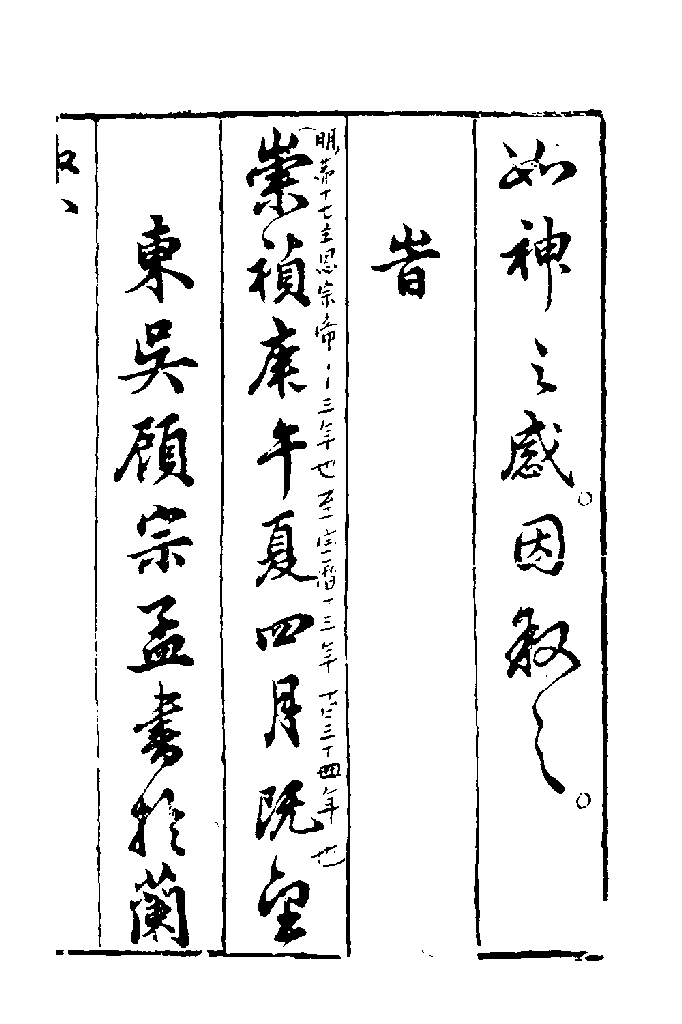 如神之感。因敘之。
昔
崇禎庚午夏四月既望
明第十七主思宗帝 三年也至宝暦十三年 百三十四年也
東吳顧宗孟書於蘭